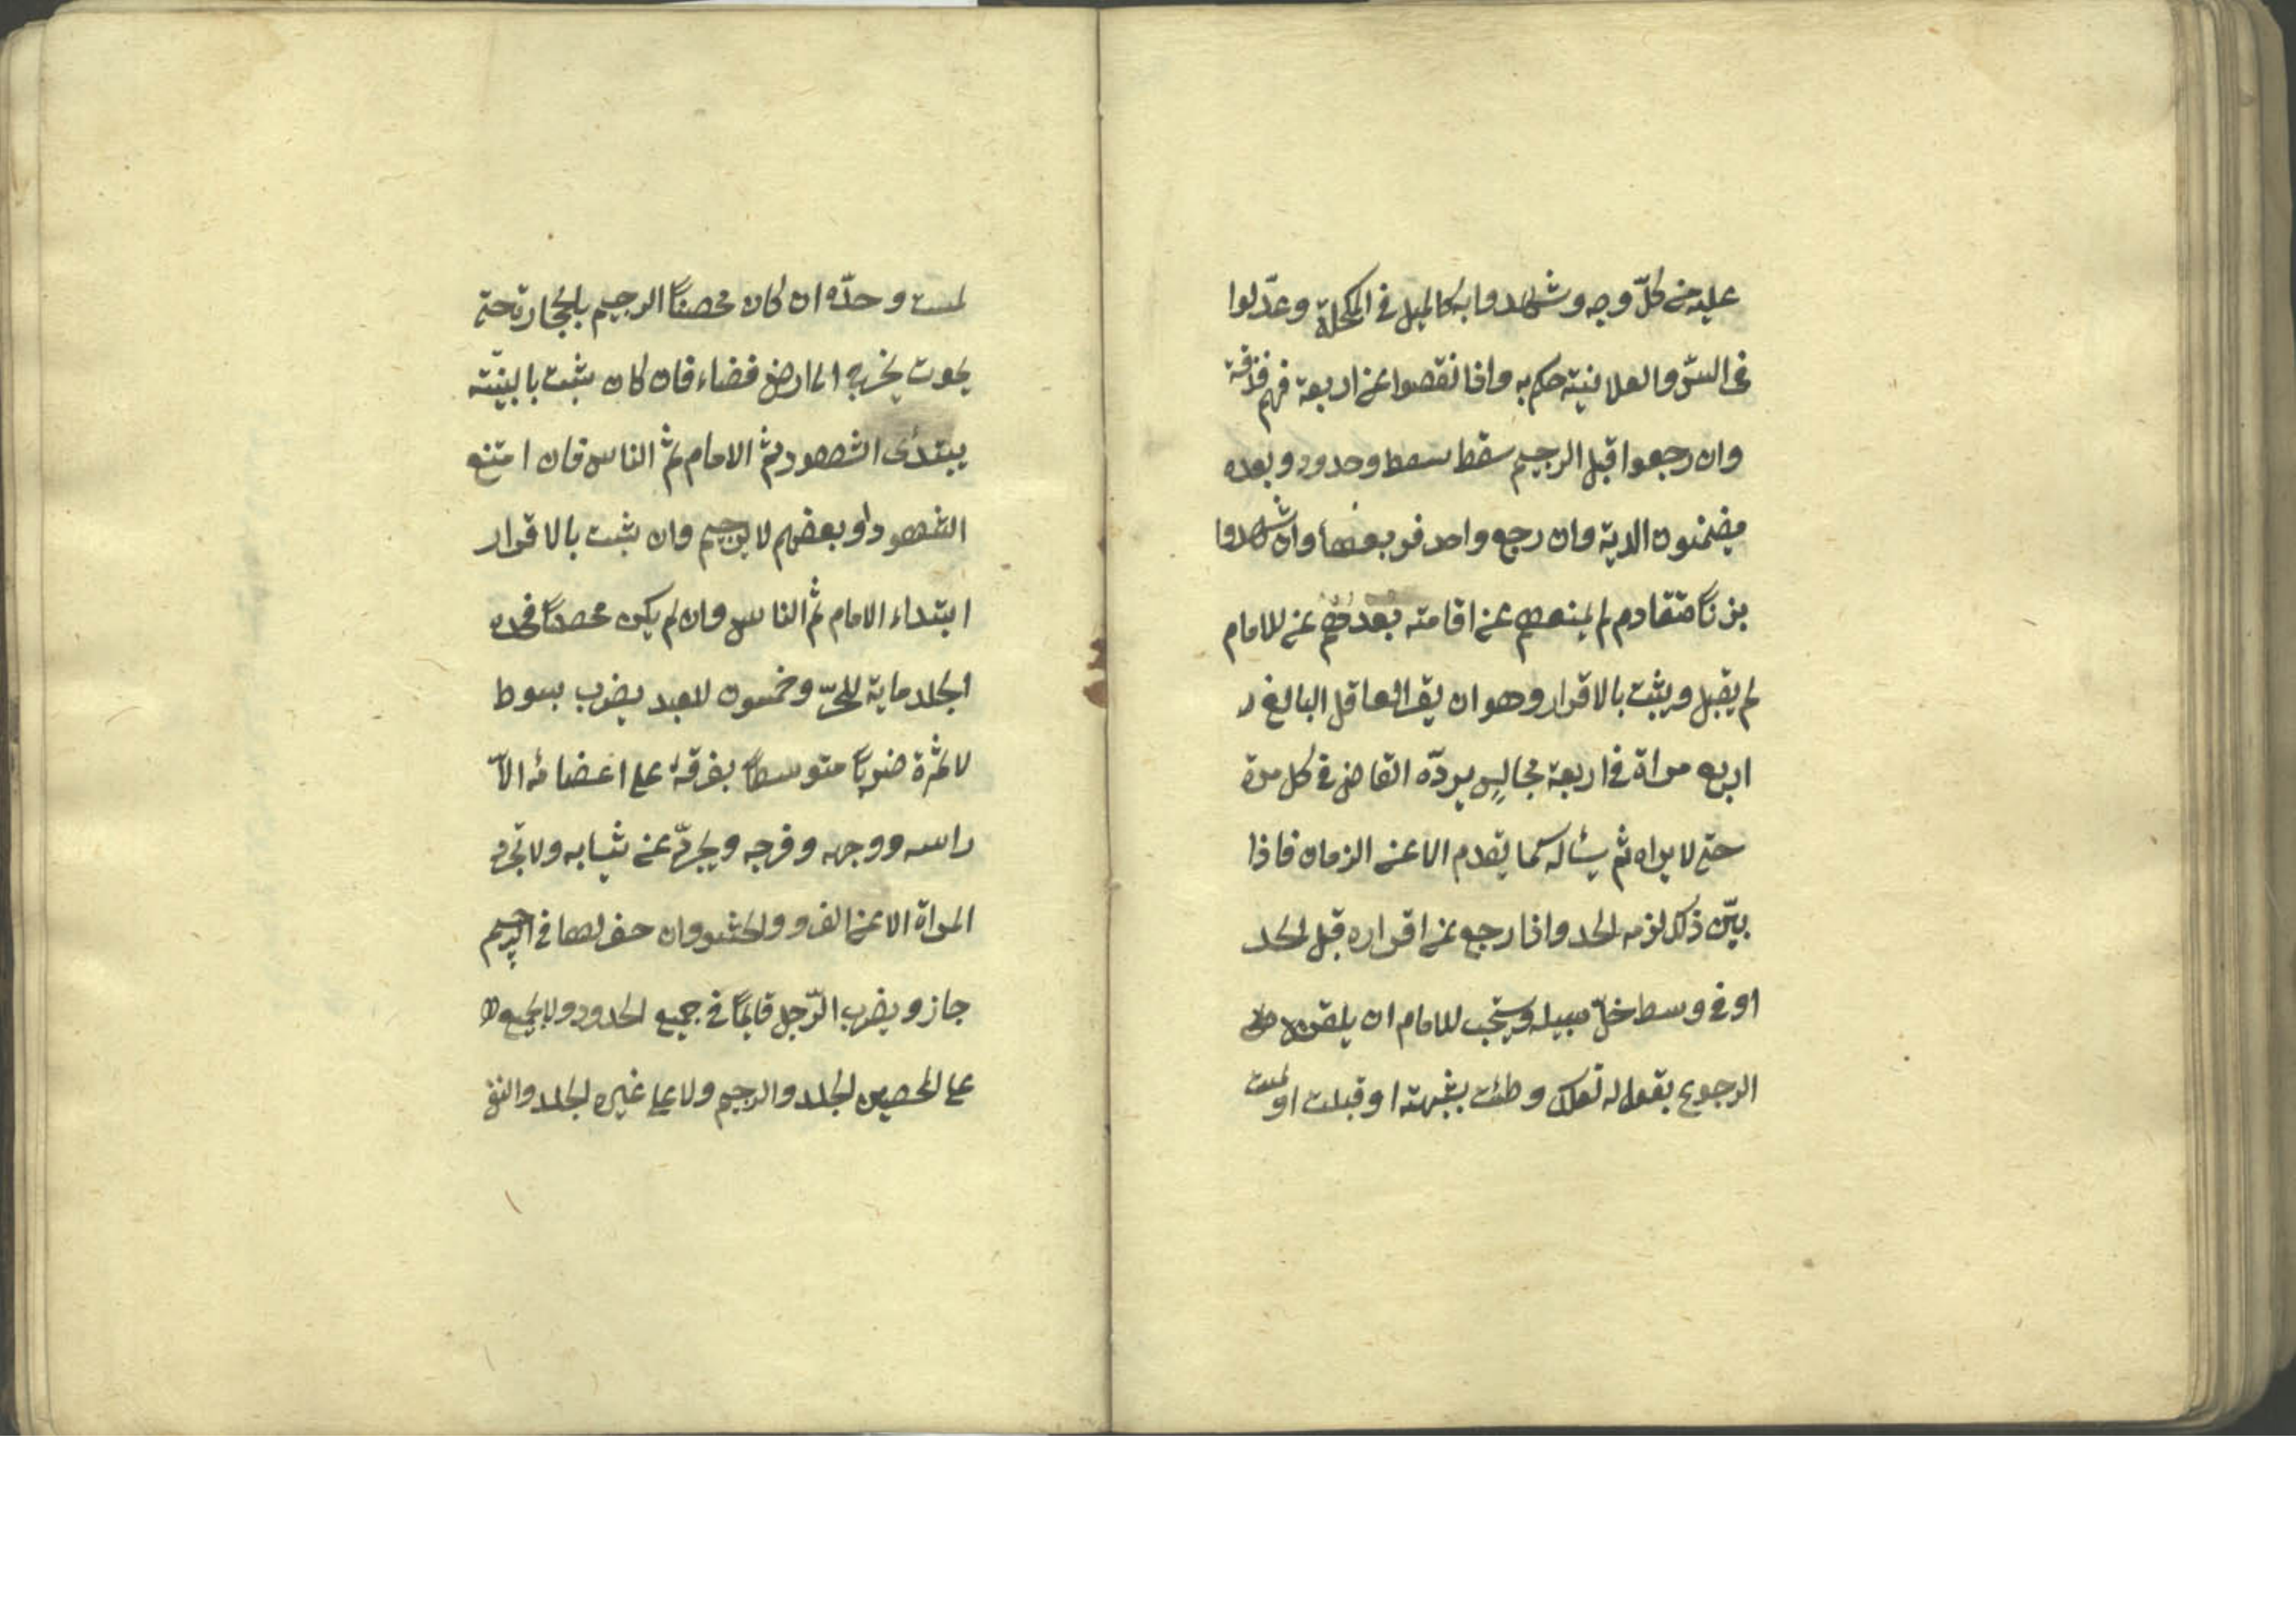 عليه من كلّ وجه وشهدوا به كالميل في المكحلة وعدّلوا
في السّر والعلانية حكم به واذا نقصوا عن اربعة فهم قذفة
وان رجعوا قبل الرجم سقط وحدود وبعده
يضمنون الدية وان رجع واحد فربعها وان شهدوا
بزناً متقادم لم يمنعهم عن اقامته بعدهم عن الامام
لم يقبل ويثبت بالاقرار وهو ان يقر العاقل البالغ
اربع مراة في اربعة مجالس يردّه القاضى في كل مرة
حتى لا يراه ثم يسئاله كما تقدم الا عن الزمان فاذا
بيّن ذلك لزمه الحد واذا رجع عن اقراره قبل الحد
او في وسط خلّ سبيله ويستحب للامام ان يلقن
الرجوع بقوله له لعلك وطئت بشبهة او قبلت او لمست
لمست وحدّه ان كان محصناً الرجم بالحجارة حتى
يموت يخرج الى ارض فضاء فان كان يثبت بالبينّة
يبتدئ الشهود ثم الامام ثم الناس فان امتنع
الشهود او بعضهم لا يرجم وان يثبت بالاقرار
ابتداء الامام ثم الناس وان لم يكن محصناً فحده
الجلد ماية للحرّ وخمسون للعبد يضرب بسوط
لا ثمرة ضرباً متوسطاً يفرقه على اعضائه الاّ
راسه ووجهه وفرجه ويجردّ عن ثيابه ولا تجرد
المراة الا عن الفرو والحشو وان حفر لها في الرجم
جاز ويضرب الرّجل قايماً في جميع الحدود ولا يجمع
على المحصن الجلد والرجم ولا على غيره الجلد والنفى